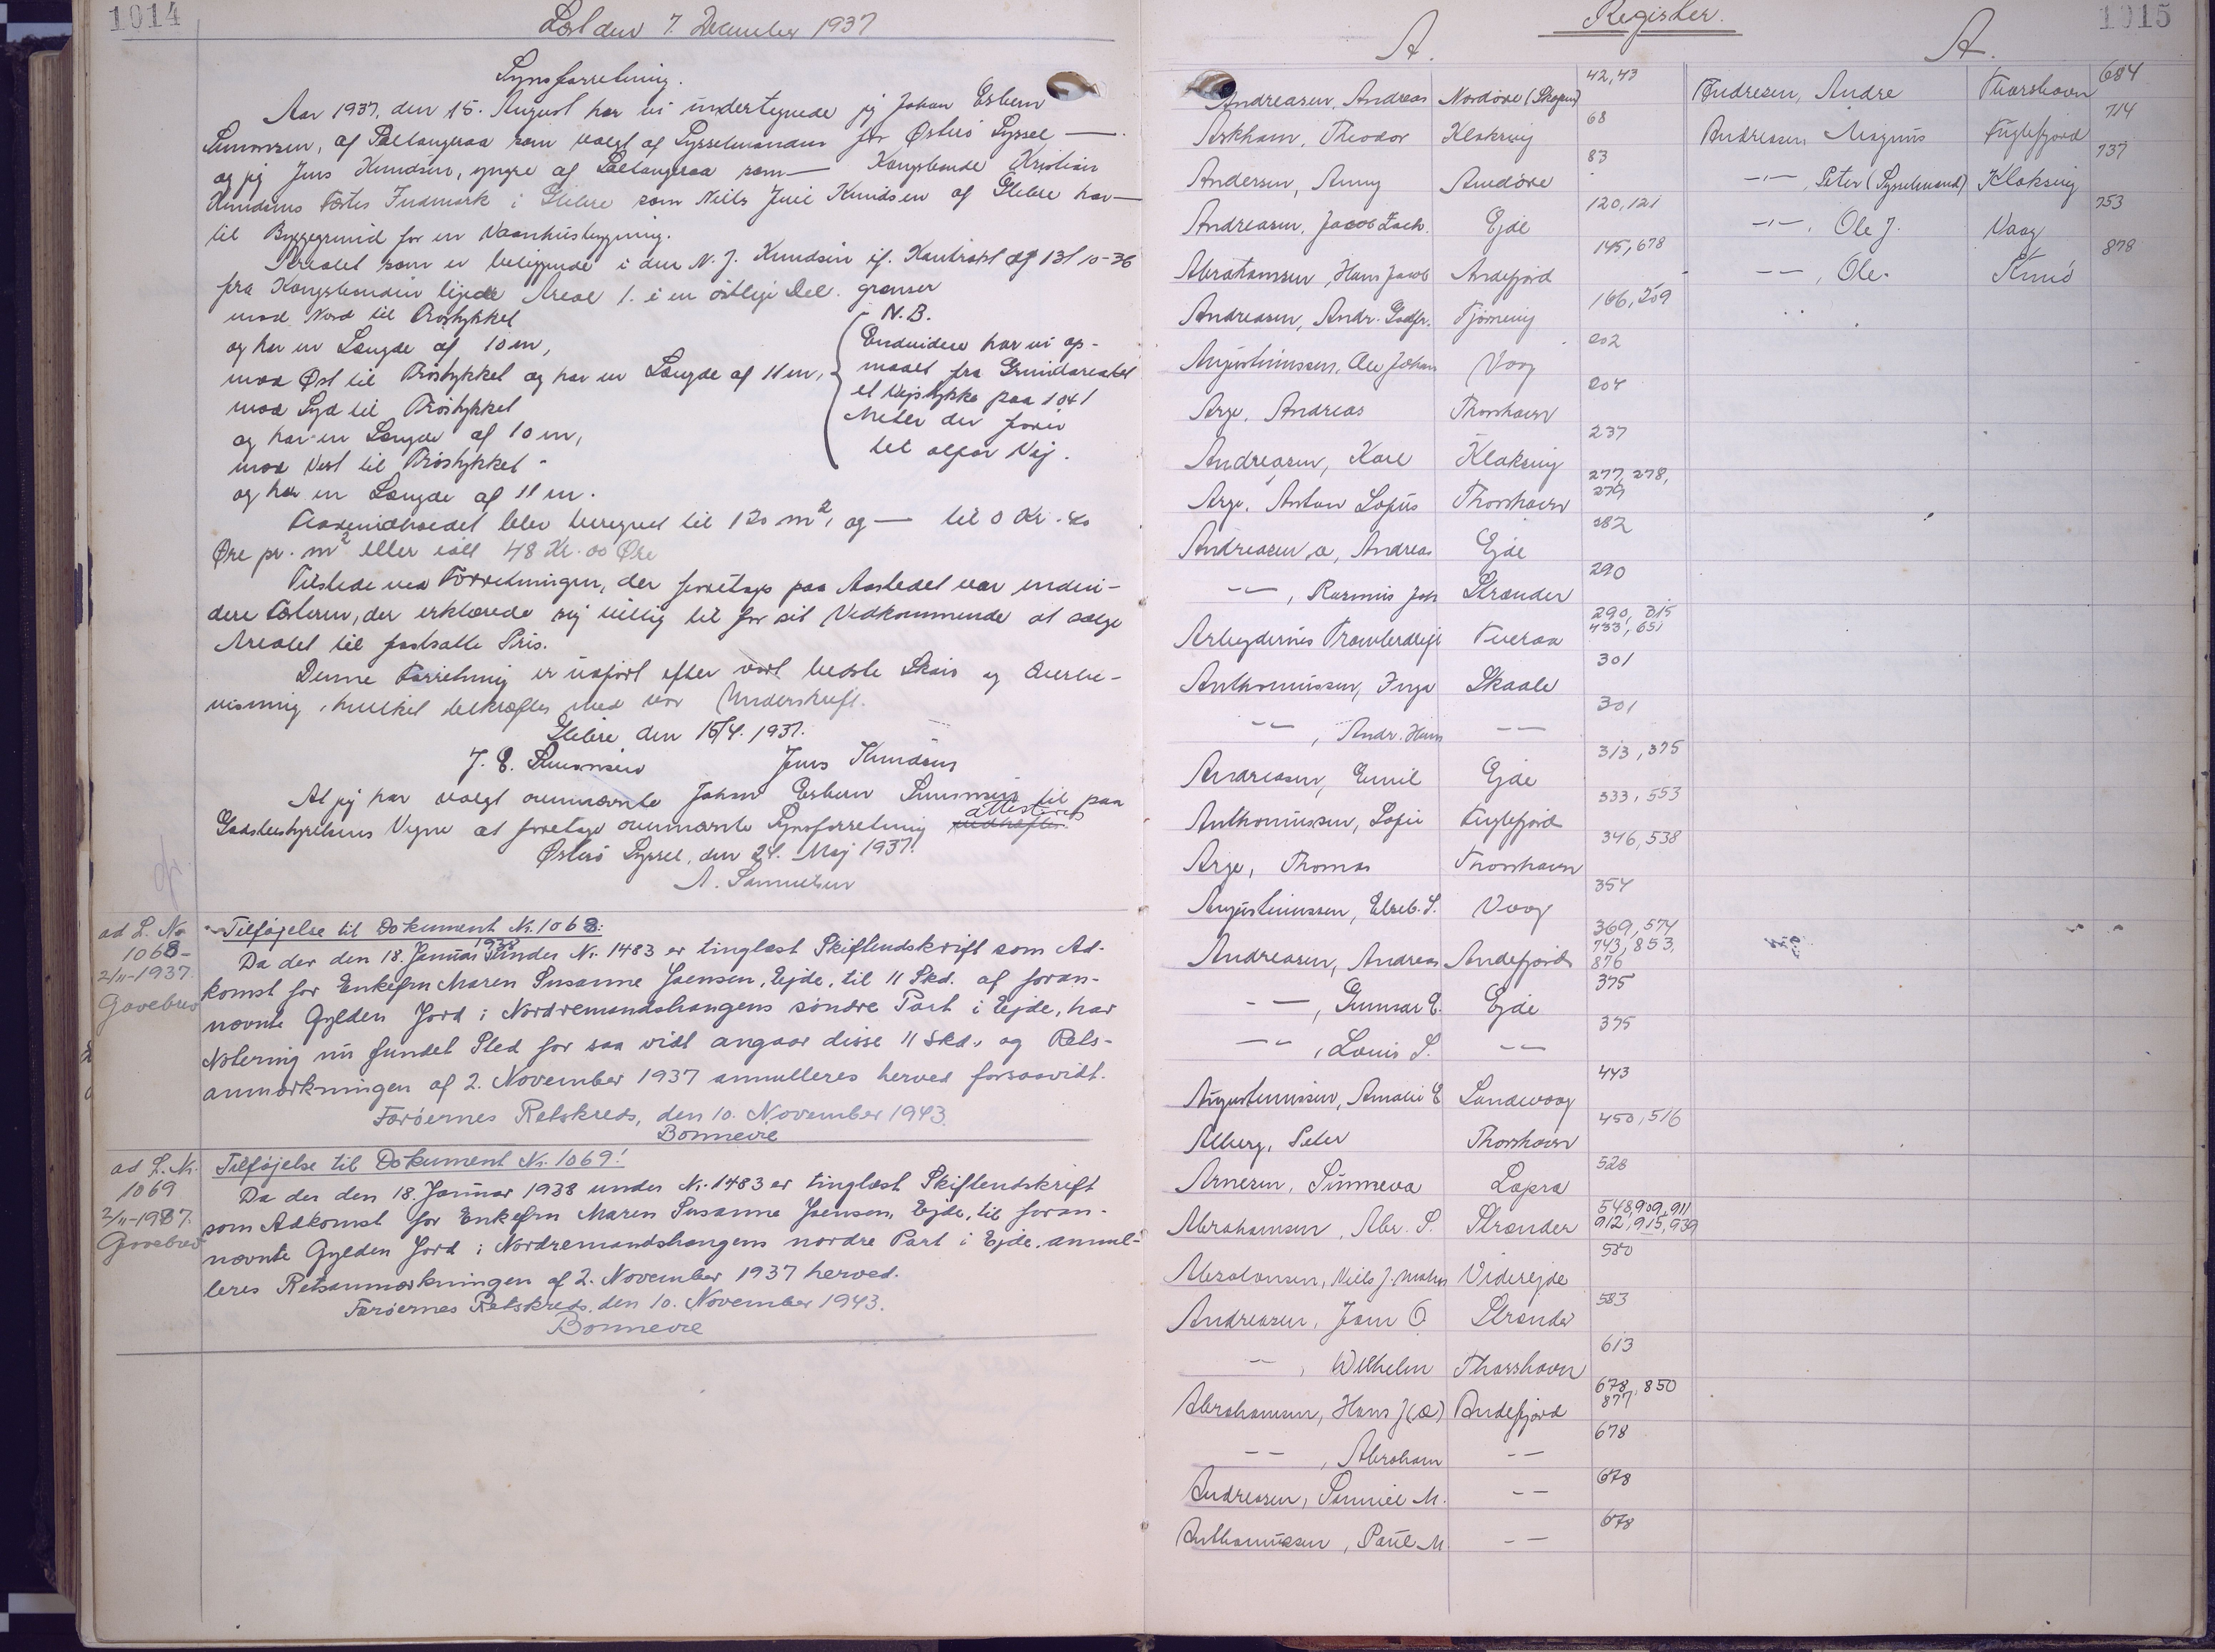 1014
Læst den 7. December 1937
Synsforretning.
Aar 1937, den 15. August har vi undertegnede jeg Johan Esbern
Simonsen, af Saltangeraa som valgt af Sysselmanden for Østerø Syssel —
og jeg Jens Knudsen, yngre af Saltangeraa som — Kongsbonde Kristian
Knudsens Fæstes Indmark i Glibre som Niels Juul Knudsen af Glibre har —
til Byggegrund for en Vaanhusbygning.
Arealet som er beliggende i den N. J. Knudsen if. Kontrakt af 131 10-36
fra Kongsbonden ligede Areal 1. i en østlige Del. grænser
mod Nord til Prøstykket
og har en Længde af 10 m,
mod Øst til Prøstykket og har en Længde af 11 m,
mod Syd til Prøstykket
og har en Længde af 10 m,
mod Vest til Prøstykket -
og har en Længde af 11 m.
N.B.
Endvidere har vi op-
maalt fra Grundarealet
et Vejstykke paa 1041
Meter der fører
tet alfar Vej.
Fladeindholdet blev beregnet til 120 m², og — til 0 Kr. 40
Øre pr. m² eller ialt 48 Kr. 00 Øre
Tilstede ved Forretningen, der foretogs paa Aastedet var endvi-
dere Fæsteren, der erklærede sig villig til for sit Vedkommende at sælge
Arealet til fastsatte Pris.
Denne Forretning er udført efter vort bedste Skøn og Overbe-
visning, hvilket bekræftes med vor Underskrift.
Glibre den 15/4. 1937.
J. E. Simonsen Jens Knudsen
At jeg har valgt ovennævnte Johan Esbern Simonsen til paa
Godsbestyrelsens Vegne at foretage ovennævnte Synsforretning attesteres
Østerø Syssel, den 24. Maj 1937.
A. Samuelsen
ad L. No
1068-
2/11-1937.
Gavebrev
Tilføjelse til Dokument Nr. 1068:
Da der den 18. Januar 1938 under Nr. 1483 er tinglæst Skifteudskrift som Ad-
komst for Enkefru Maren Susanne Joensen, Ejde, til 11 Skd. af foran-
nævnte Gylden Jord i Nordremandshangens søndre Part i Ejde, har
Notering nu fundet Sted for saa vidt angaar disse 11 Skd., og Rets-
anmærkningen af 2. November 1937 annulleres herved forsaavidt.
Færøernes Retskreds, den 10. November 1943.
Bonnevie
ad L. Nr.
1069
2/11-1937.
Gavebrev
Tilføjelse til Dokument Nr. 1069:
Da der den 18. Januar 1938 under Nr. 1483 er tinglæst Skifteudskrift
som Adkomst for Enkefru Maren Susanne Joensen, Ejde, til foran-
nævnte Gylden Jord i Nordremandshangens nordre Part i Ejde, annul-
leres Retsanmærkningen af 2. November 1937 herved.
Færøernes Retskreds, den 10. November 1943.
Bonnevie
Register.
1015
A. A.
Andreasen, Andreas Nordøre (Skopun) 42, 43
Arkham, Theodor Klaksvig 68
Andersen, Anny Andøre 83
Andreasen, Jacob Zach. Ejde 120, 121
Abrahamsen, Hans Jacob Andefjord 145, 678
Andreasen, Andr. Godfr. Fjørnevig 166, 259
Augustinussen, Ole Johan Vaag 202
Arge, Andreas Thorshavn 204
Andreasen, Karl Klaksvig 237
Arge, Anton Lopus Thorshavn 277, 278, 279
Andreasen a, Andreas Ejde 282
-"-, Rasmus Joh Strander 290
Arbejdernes Trawlerdrift Tveraa 290, 315 433, 651
Anthoniussen, Inga Skaale 301
-"-, Andr. Hans -"- 301
Andreasen, Emil Ejde 313, 375
Anthoniussen, Sofie Fuglefjord 333, 553
Arge, Thomas Thorshavn 346, 538
Augustinussen, Elseb. S. Vaag 354
Andreasen, Andreas Andefjord 369, 574 743, 853, 876
-"-, Gunnar E. Ejde 375
-"-, Louis S. -"- 375
Augustinussen, Amalie E Sandvaag 443
Alberg, Peter Thorshavn 450, 516
Arnesen, Sunneva Lopra 528
Abrahamsen, Abr. S. Strander 548, 909, 911 912, 915, 939
Absalonsen, Niels J. Mohr Viderejde 580
Andreasen, Joen O. Strander 583
-"-, Wilhelm Thorshavn 613
Abrahamsen, Hans J (a) Andefjord 678, 850 877
-"-, Abraham -"- 678
Andreasen, Samuel M. -"- 678
Anthoniussen, Paul M. -"- 678
Andresen, Andre Thorshavn 684
Andreasen, Magnus Fuglefjord 714
-"-, Peter (Sysselmand) Klaksvig 737
-"-, Ole J. Vaag 753
-"-, Ole. Kunø 878